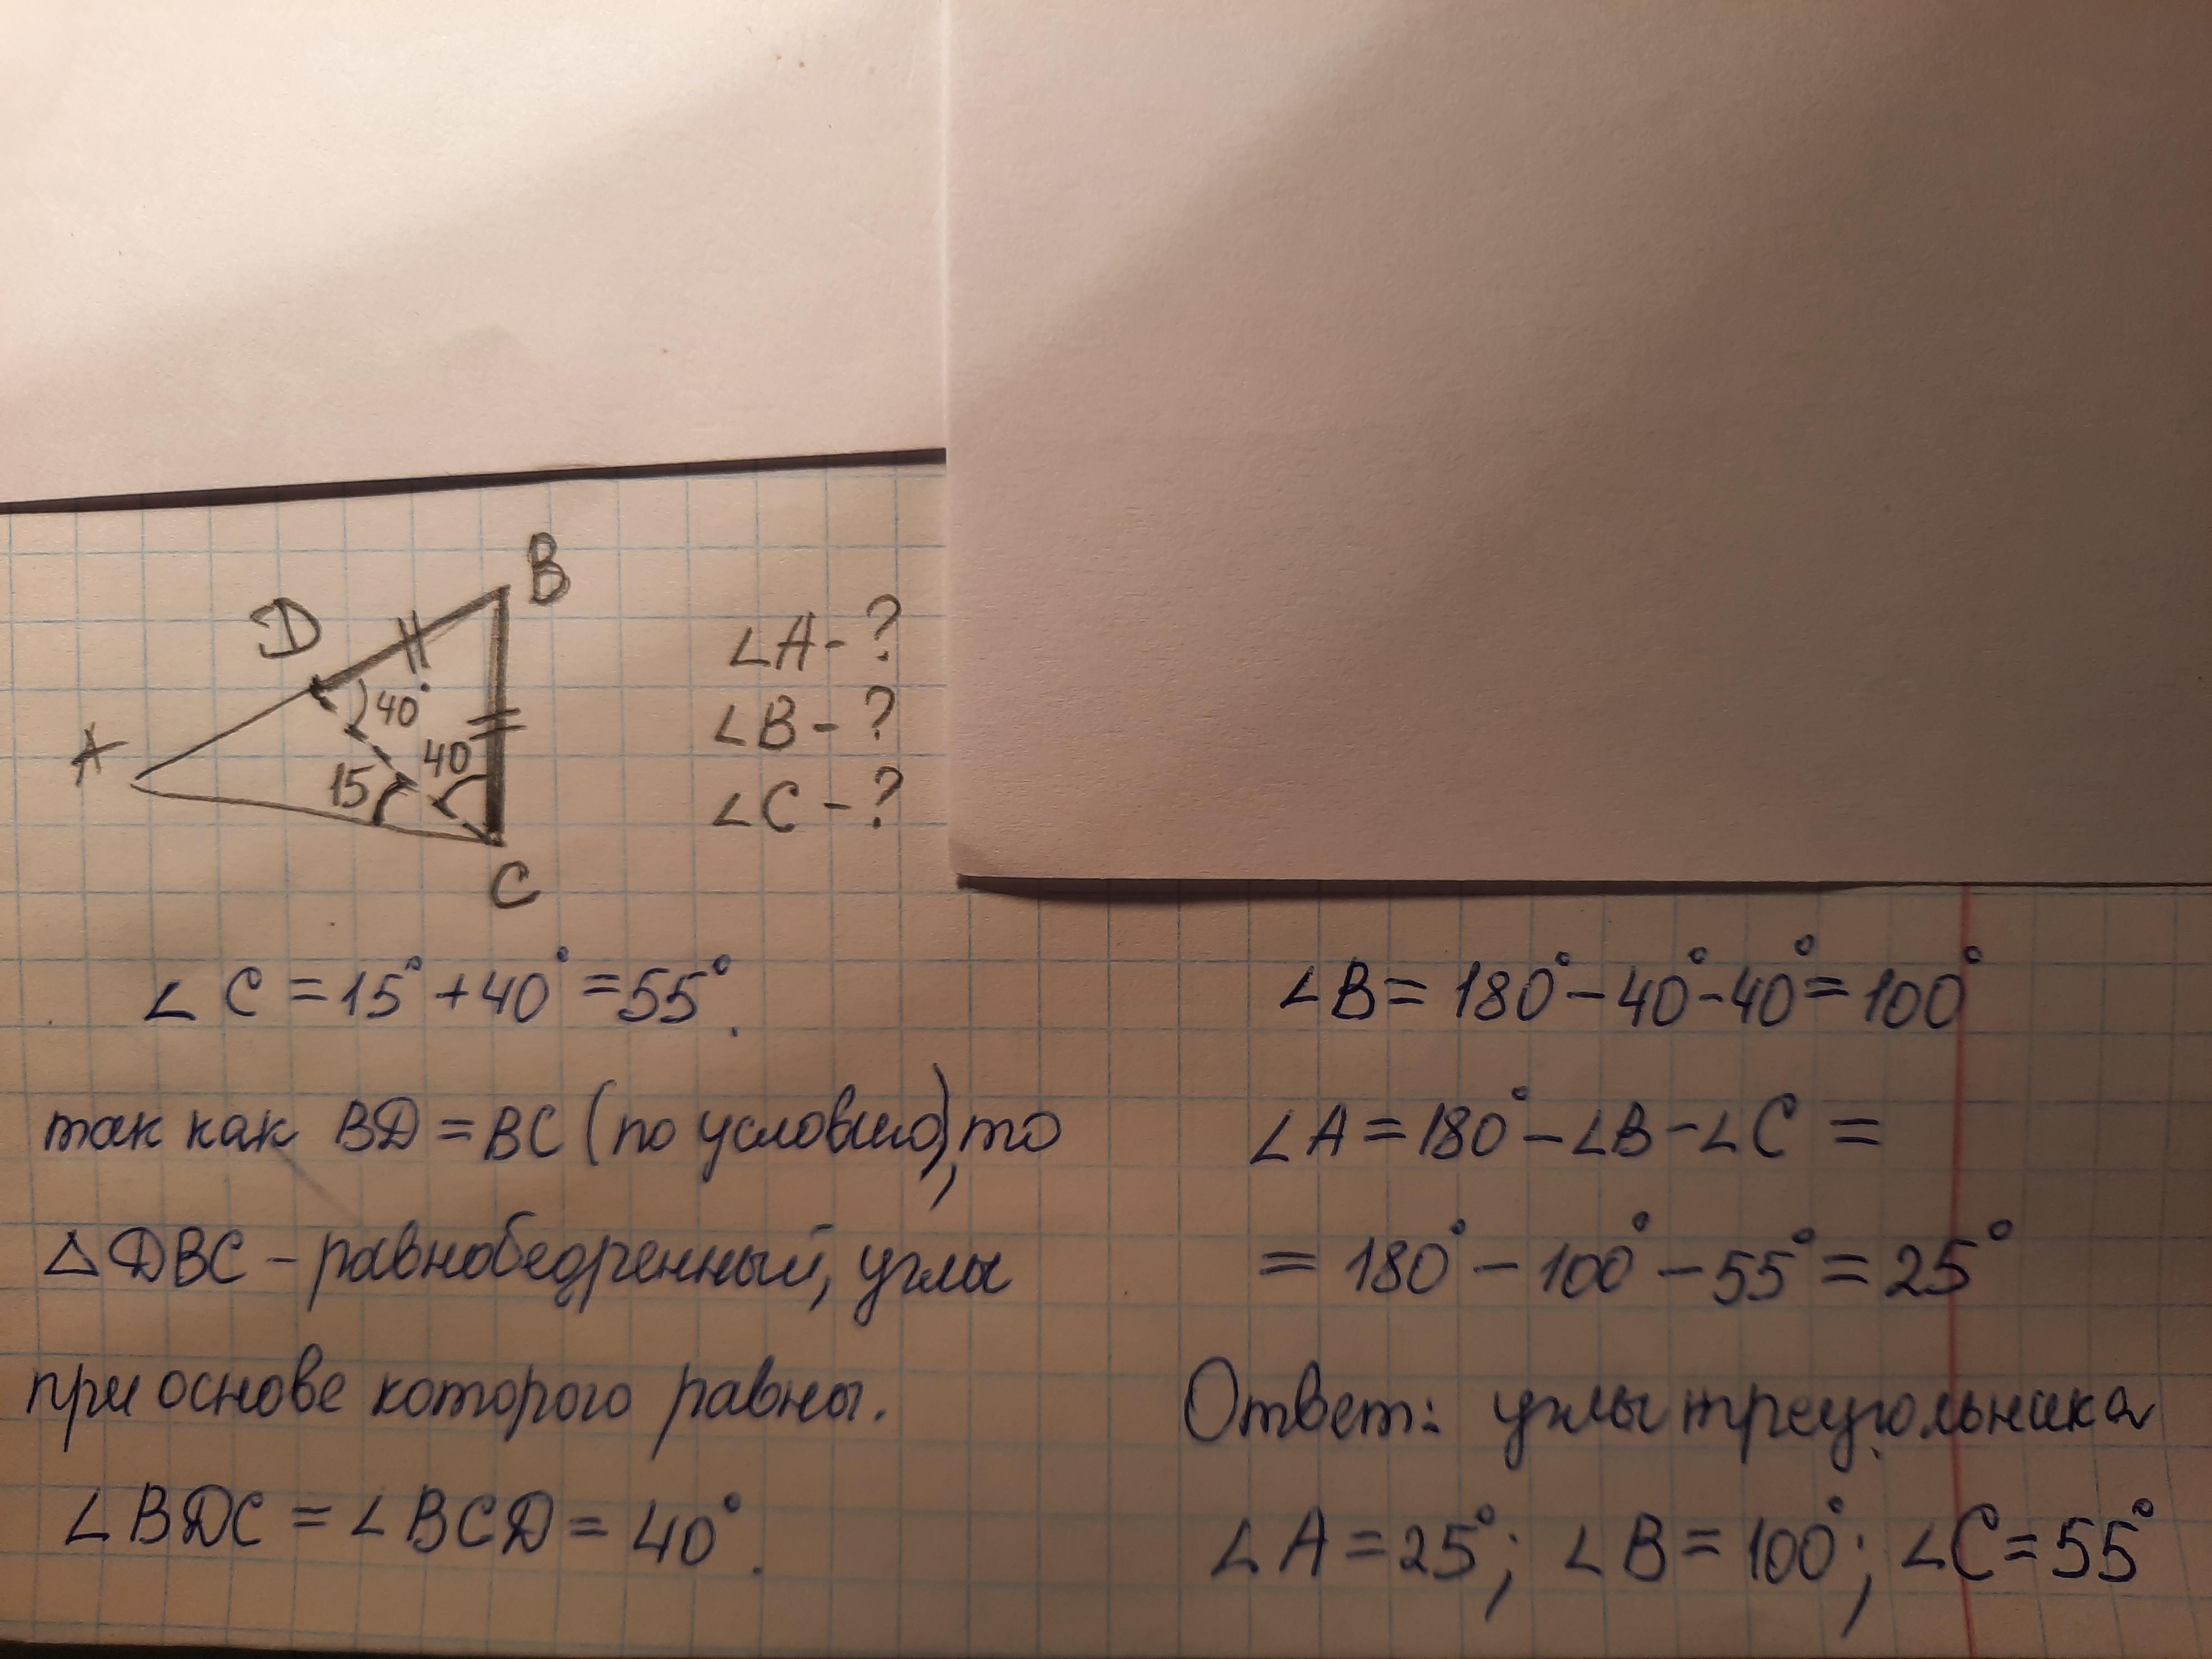 B
D
40°
A
40
15
C
∠A-?
∠B-?
∠C-?
∠C=15°+40°=55°.
так как BD=BC (по условию), то
△DBC - равнобедренный, углы
при основе которого равны.
∠BDC=∠BCD=40°.
∠B=180°-40°-40°=100°
∠A=180°-∠B-∠C=
=180°-100°-55°=25°
Ответ: углы треугольника
∠A=25°; ∠B=100°; ∠C=55°